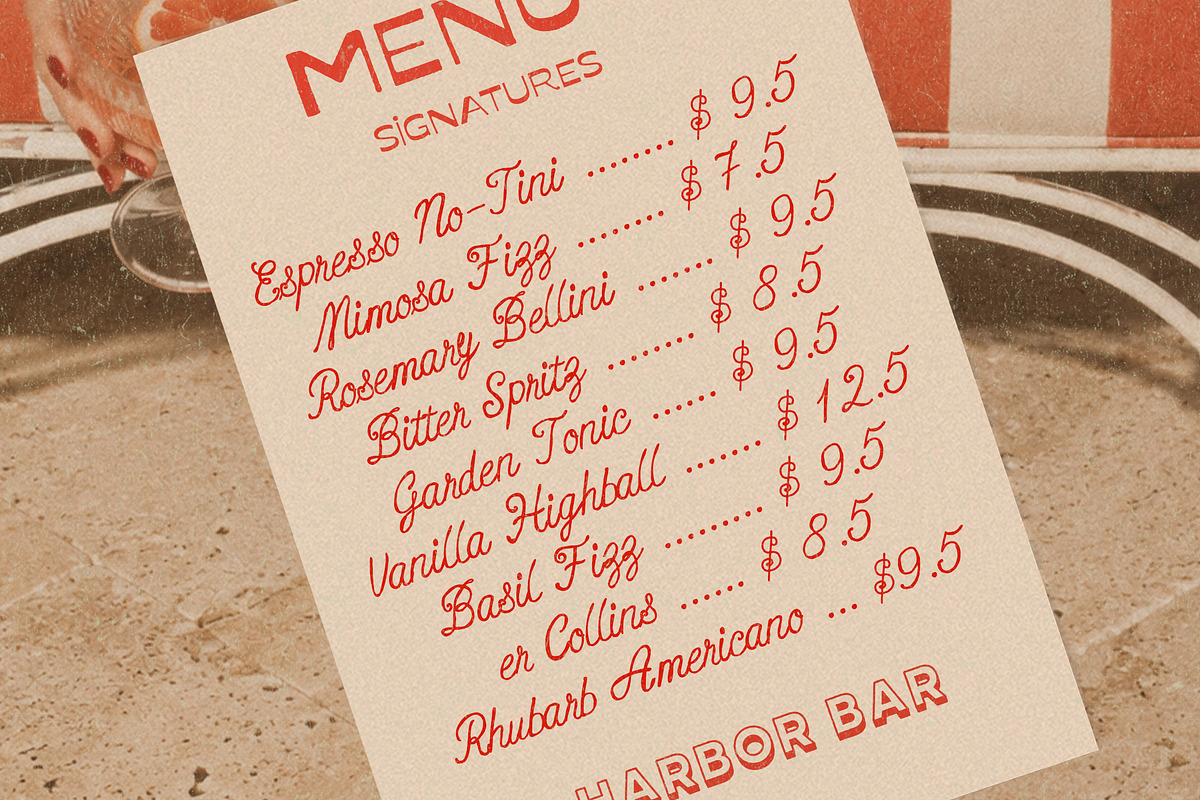 MENU
SiGNATURES
Espresso No-Tini ........ $ 9.5
Mimosa Fizz ........ $ 7.5
Rosemary Bellini ....... $ 9.5
Bitter Spritz ........ $ 8.5
Garden Tonic ...... $ 9.5
Vanilla Highball ....... $ 12.5
Basil Fizz ......... $ 9.5
er Collins ...... $ 8.5
Rhubarb Americano ... $9.5
HARBOR BAR